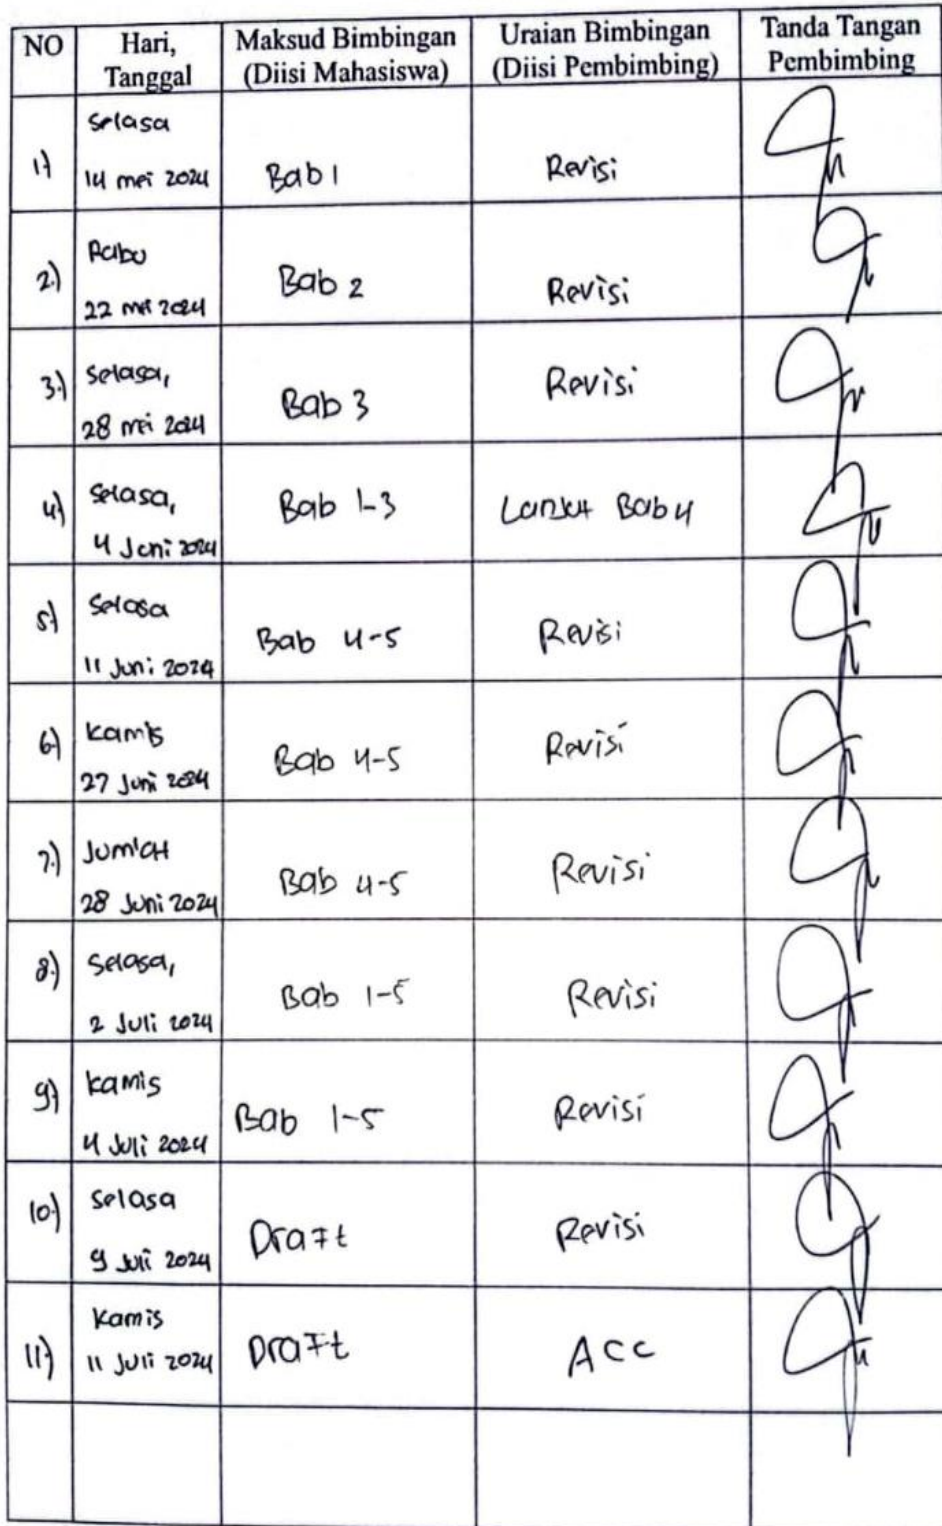 NO
Hari,
Tanggal
Maksud Bimbingan
(Diisi Mahasiswa)
Uraian Bimbingan
(Diisi Pembimbing)
Tanda Tangan
Pembimbing
1)
Selasa
14 mei 2024
Bab 1
Revisi
2)
Rabu
22 mei 2024
Bab 2
Revisi
3)
Selasa,
28 mei 2024
Bab 3
Revisi
4)
Selasa,
4 Juni 2024
Bab 1-3
Lanjut Bab 4
5)
Selasa
11 Juni 2024
Bab 4-5
Revisi
6)
Kamis
27 Juni 2024
Bab 4-5
Revisi
7)
Jum'at
28 Juni 2024
Bab 4-5
Revisi
8)
Selasa,
2 Juli 2024
Bab 1-5
Revisi
9)
Kamis
4 Juli 2024
Bab 1-5
Revisi
10)
Selasa
9 Juli 2024
Draft
Revisi
11)
Kamis
11 Juli 2024
Draft
ACC